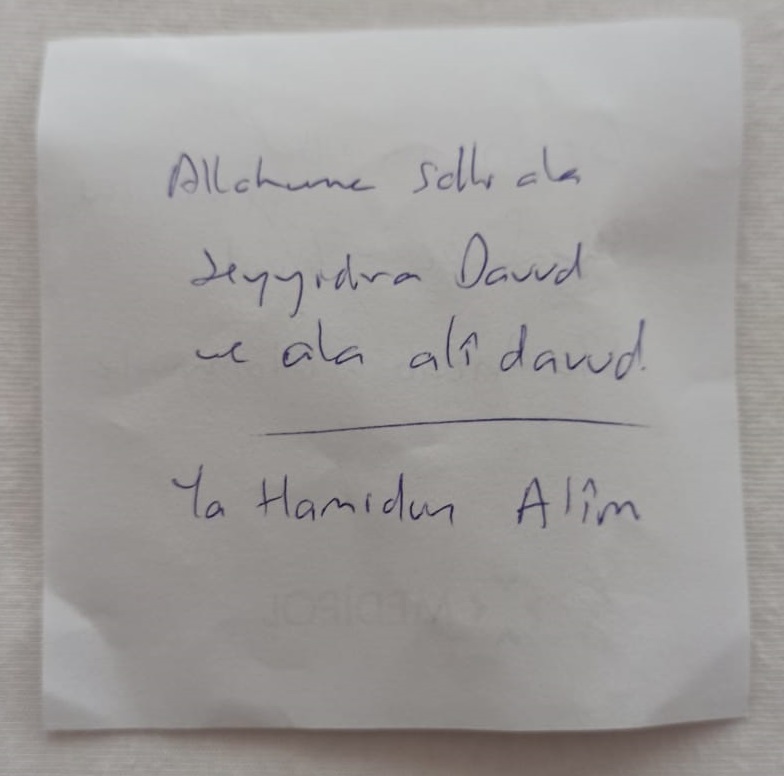 Allahume salli ala
seyyidina Davud
ve ala alî davud.
Ya Hamidun Alîm